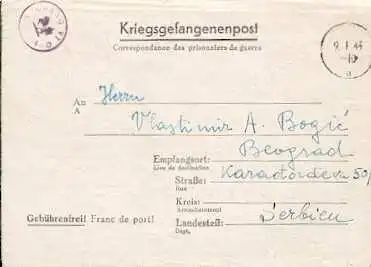 Kriegsgefangenenpost
Correspondance des prisonniers de guerre
9.1.43
An Herrn
A
Vlastimir A. Bogić
Empfangsort: Beograd
Lieu de destination
Straße: Karađorđeva 50
Rue
Kreis:
Arrondissement
Gebührenfrei! Franc de port!
Landesteil: Serbien
Dépt.